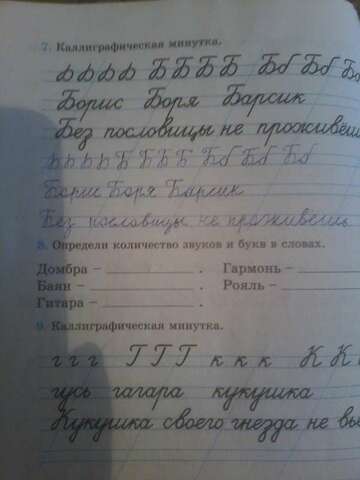 7. Каллиграфическая минутка.
Б Б Б Б Б Б Б Б Бб Бб Бб
Борис Боря Барсик
Без пословицы не проживёшь
Б Б Б Б Б Б Б Б Бб Бб Бб
Борис Боря Барсик
Без пословицы не проживёшь
8. Определи количество звуков и букв в словах.
Домбра – . Гармонь –
Баян – . Рояль –
Гитара – .
9. Каллиграфическая минутка.
г г г Г Г Г к к к К К
гусь гагара кукушка
Кукушка своего гнезда не